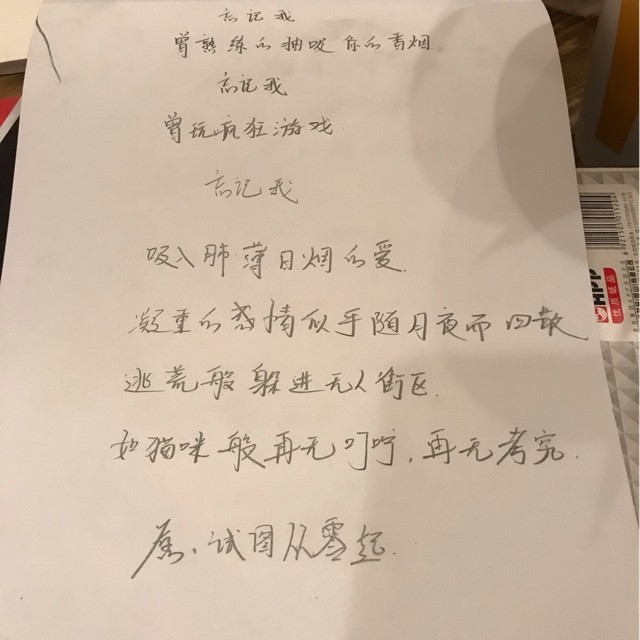 忘记我
曾熟练的抽吸你的香烟
忘记我
曾玩疯狂游戏
忘记我
吸入肺薄日烟的爱.
凝重的感情似乎随月夜而四散
逃荒般躲进无人街区.
如猫咪般再无叮咛,再无考究.
试图从零起.
HPP
优质纸品